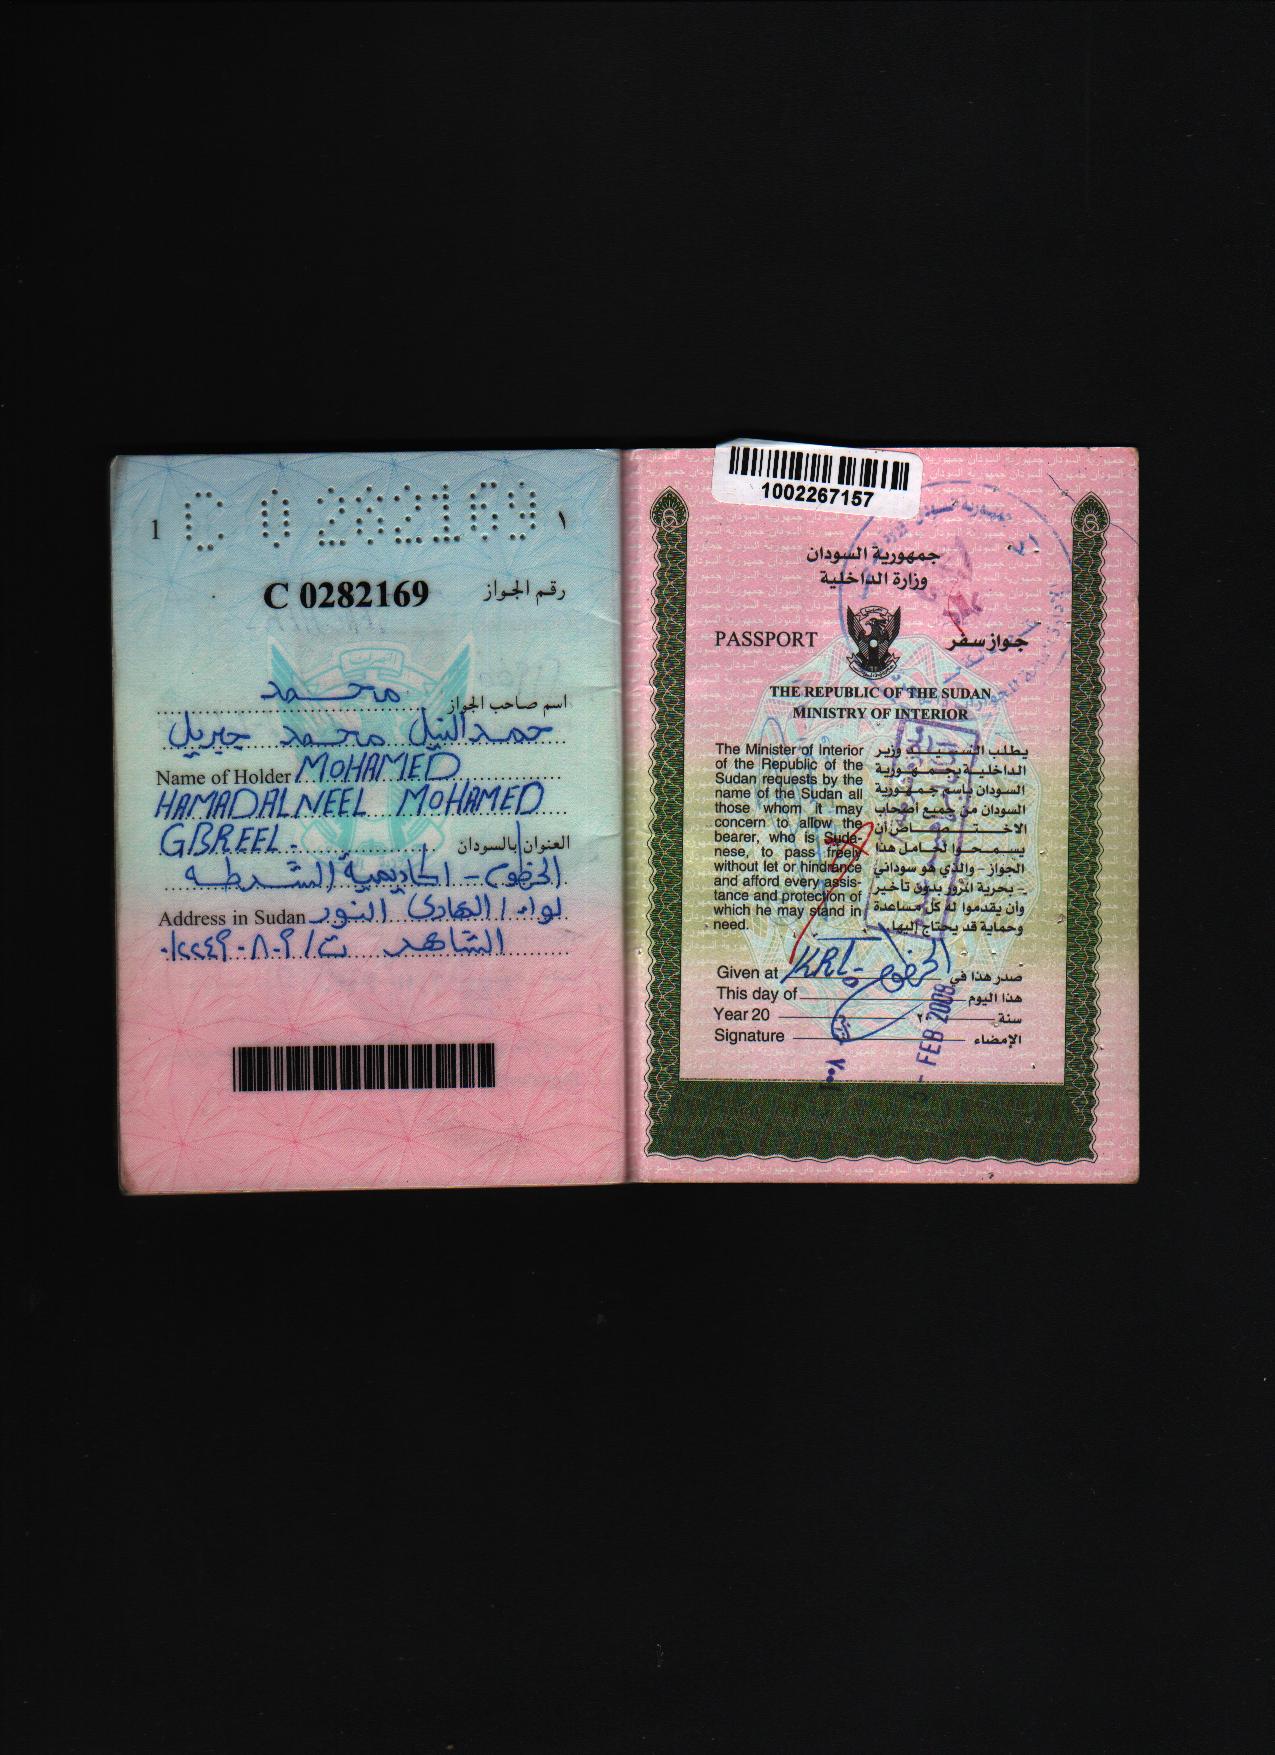 1
C 0282169
١
C 0282169 رقم الجواز
اسم صاحب الجواز محمد
حمد النيل محمد جبريل
Name of Holder MOHAMED
HAMADALNEEL MOHAMED
GBREEL.
العنوان بالسودان
الخرطوم - اكاديمية الشرطة
Address in Sudan لواء / الهادى النور
الشاهر ت /
1002267157
جمهورية السودان
وزارة الداخلية
PASSPORT جواز سفر
THE REPUBLIC OF THE SUDAN
MINISTRY OF INTERIOR
The Minister of Interior
of the Republic of the
Sudan requests by the
name of the Sudan all
those whom it may
concern to allow the
bearer, who is Suda-
nese, to pass freely
without let or hindrance
and afford every assis-
tance and protection of
which he may stand in
need.
يطلب السيد وزير
الداخلية بجمهورية
السودان باسم جمهورية
السودان من جميع أصحاب
الاختصاص أن
يسمحوا لحامل هذا
الجواز - والذي هو سوداني
- بحرية المرور بدون تأخير
وأن يقدموا له كل مساعدة
وحماية قد يحتاج إليها.
Given at KRT. الخرطوم صدر هذا في
This day of هذا اليوم
Year 20 ٢٠ سنة
Signature الإمضاء
FEB 2008